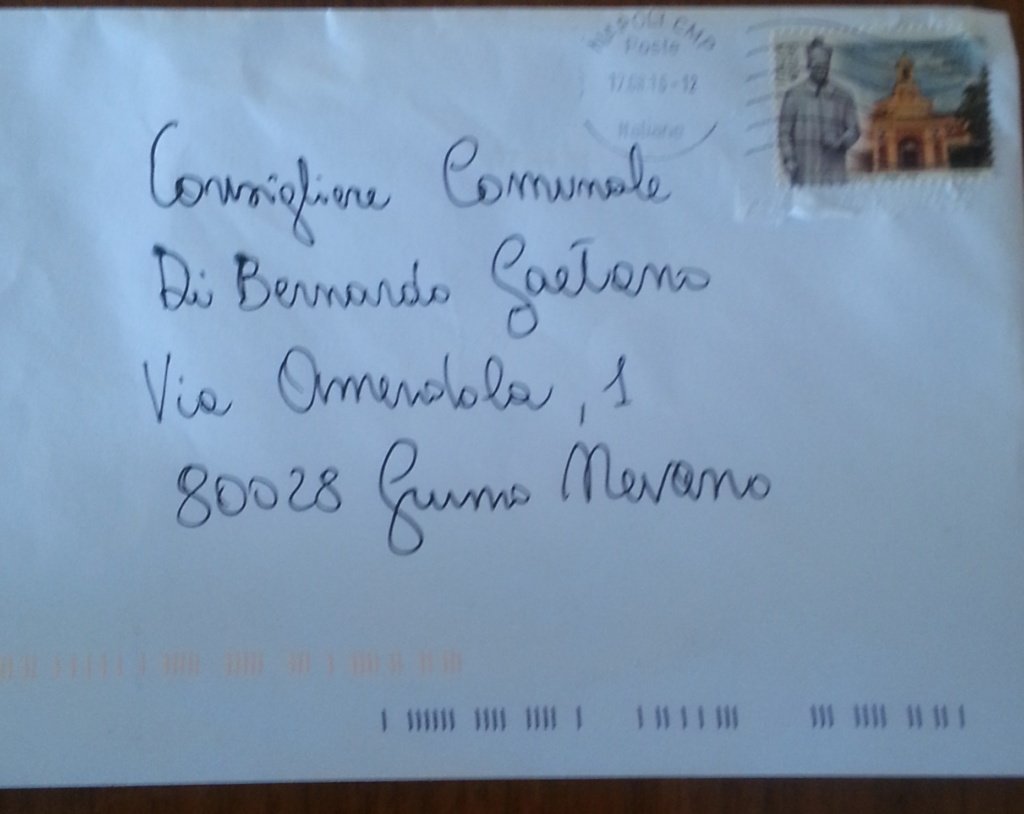 NAPOLI CMP
Poste
Italiane
Consigliere Comunale
Di Bernardo Gaetano
Via Amendola, 1
80028 Grumo Nevano